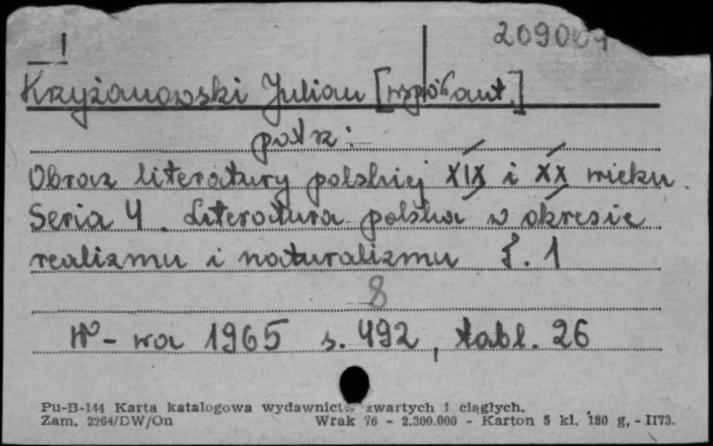 209009
1
Krzyżanowski Julian [współaut.]
patrz:
Obraz literatury polskiej XIX i XX wieku.
Seria 4. Literatura polska w okresie
realizmu i naturalizmu T. 1
8
W-wa 1965 s. 492, tabl. 26
Pu-B-144 Karta katalogowa wydawnictw zwartych i ciągłych.
Zam. 2264/DW/On Wrak 76 - 2.300.000 - Karton 5 kl. 180 g, - II73.